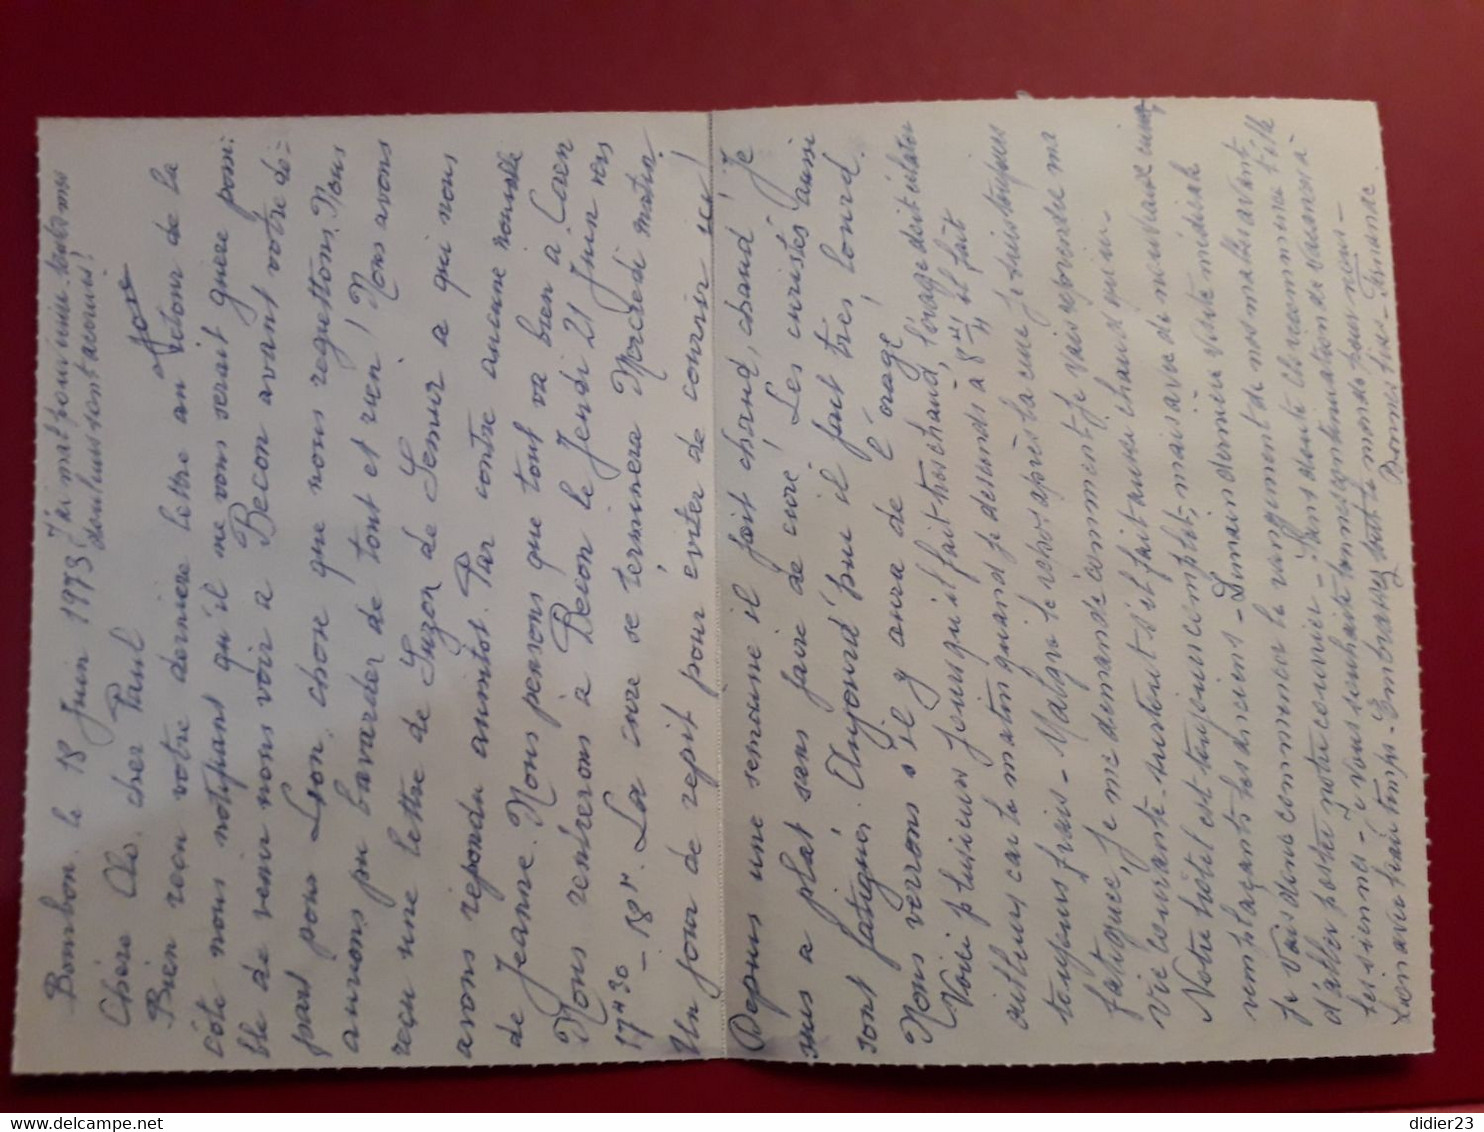 Bourbon, le 18 Juin 1973
J'ai mal pour vivre
douleurs sont accrues!
Chère Clo, cher Paul
Bien reçu votre dernière lettre au retour de la
côte nous notifiant qu'il ne vous serait guère possi:
ble de venir nous voir à Becon avant votre dé:
part pour Lyon, chose que nous regrettons. Nous
aurions pu bavarder de tout et rien! Nous avons
reçu une lettre de Suzon de Semur a qui nous
avons répondu aussitôt. Par contre aucune nouvelle
de Jeanne. Nous pensons que tout va bien à Caen
Nous rentrerons à Becon le Jeudi 21 Juin vers
17H30 - 18H. La cure se terminera Mercredi matin.
Un jour de repit pour éviter de courir ici!
Depuis une semaine il fait chaud, chaud! Je
suis a plat sans faire de cure! Les curistes aussi
sont fatigués. Aujourd'hui il fait très lourd.
Nous verrons s'il y aura de l'orage!
Voici plusieurs jours qu'il fait très chaud, l'orage doit éclater
ailleurs car le matin quand je descends à 8H il fait
toujours frais - Malgré le repos après la cure je suis toujours
fatiguée, je me demande comment je vais reprendre ma
vie courante surtout s'il fait aussi chaud qu'ici
Notre hôtel est toujours complet, mais avec de nouveaux venus
remplaçants les anciens - Demain dernière visite médicale
je vais donc commencer le rangement de nos malles avant
d'aller porter notre courrier - Sans doute Clo recommence t'elle
les siennes - Je vous souhaite bonne continuation de vacances à
Lion avec beau temps - Embrassez tout le monde pour nous -
Bonnes bises -